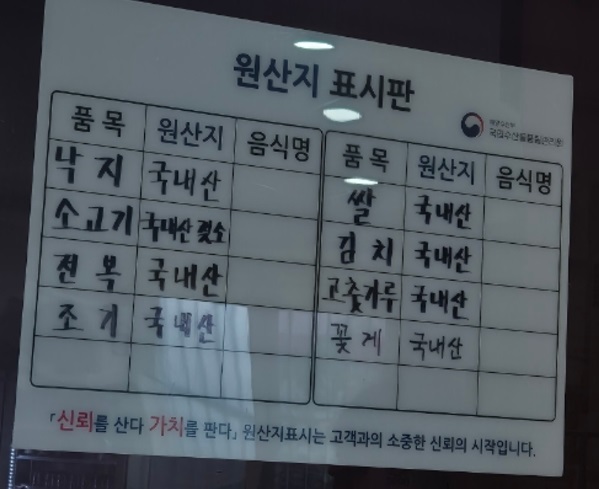 원산지 표시판
해양수산부
국립수산물품질관리원
품목 원산지 음식명
낙지 국내산
소고기 국내산 젖소
전복 국내산
조기 국내산
품목 원산지 음식명
쌀 국내산
김치 국내산
고춧가루 국내산
꽃게 국내산
「신뢰를 산다 가치를 판다」 원산지표시는 고객과의 소중한 신뢰의 시작입니다.